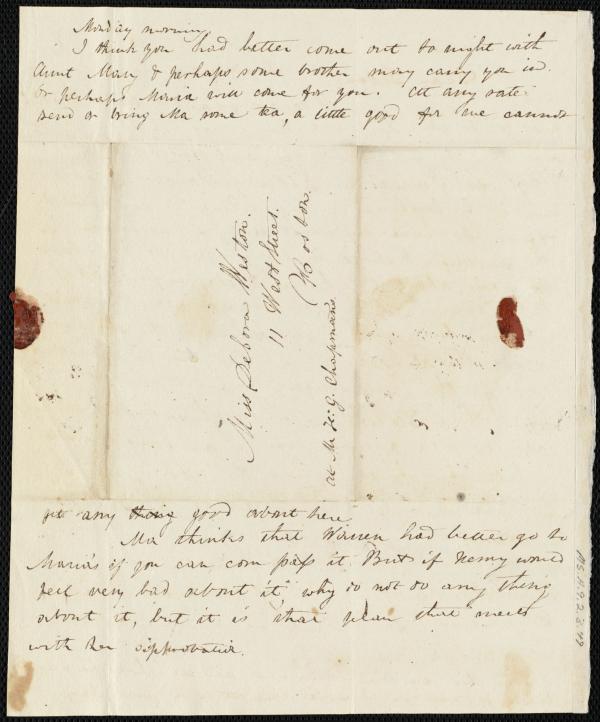 Monday morning.
I think you had better come out to night with
Aunt Mary & perhaps some brother may carry you in.
Or perhaps Maria will come for you. At any rate
send or bring Ma some tea, a little good for we cannot
Miss Debora Weston.
11 West Street.
Boston.
at Mr H. G. Chapman's
get any thing good about here.
Ma thinks that Warren had better go to
Maria's if you can com pass it. But if Henry would
feel very bad about it why do not do any thing
about it, but it is that plan that meets
with her approbation.